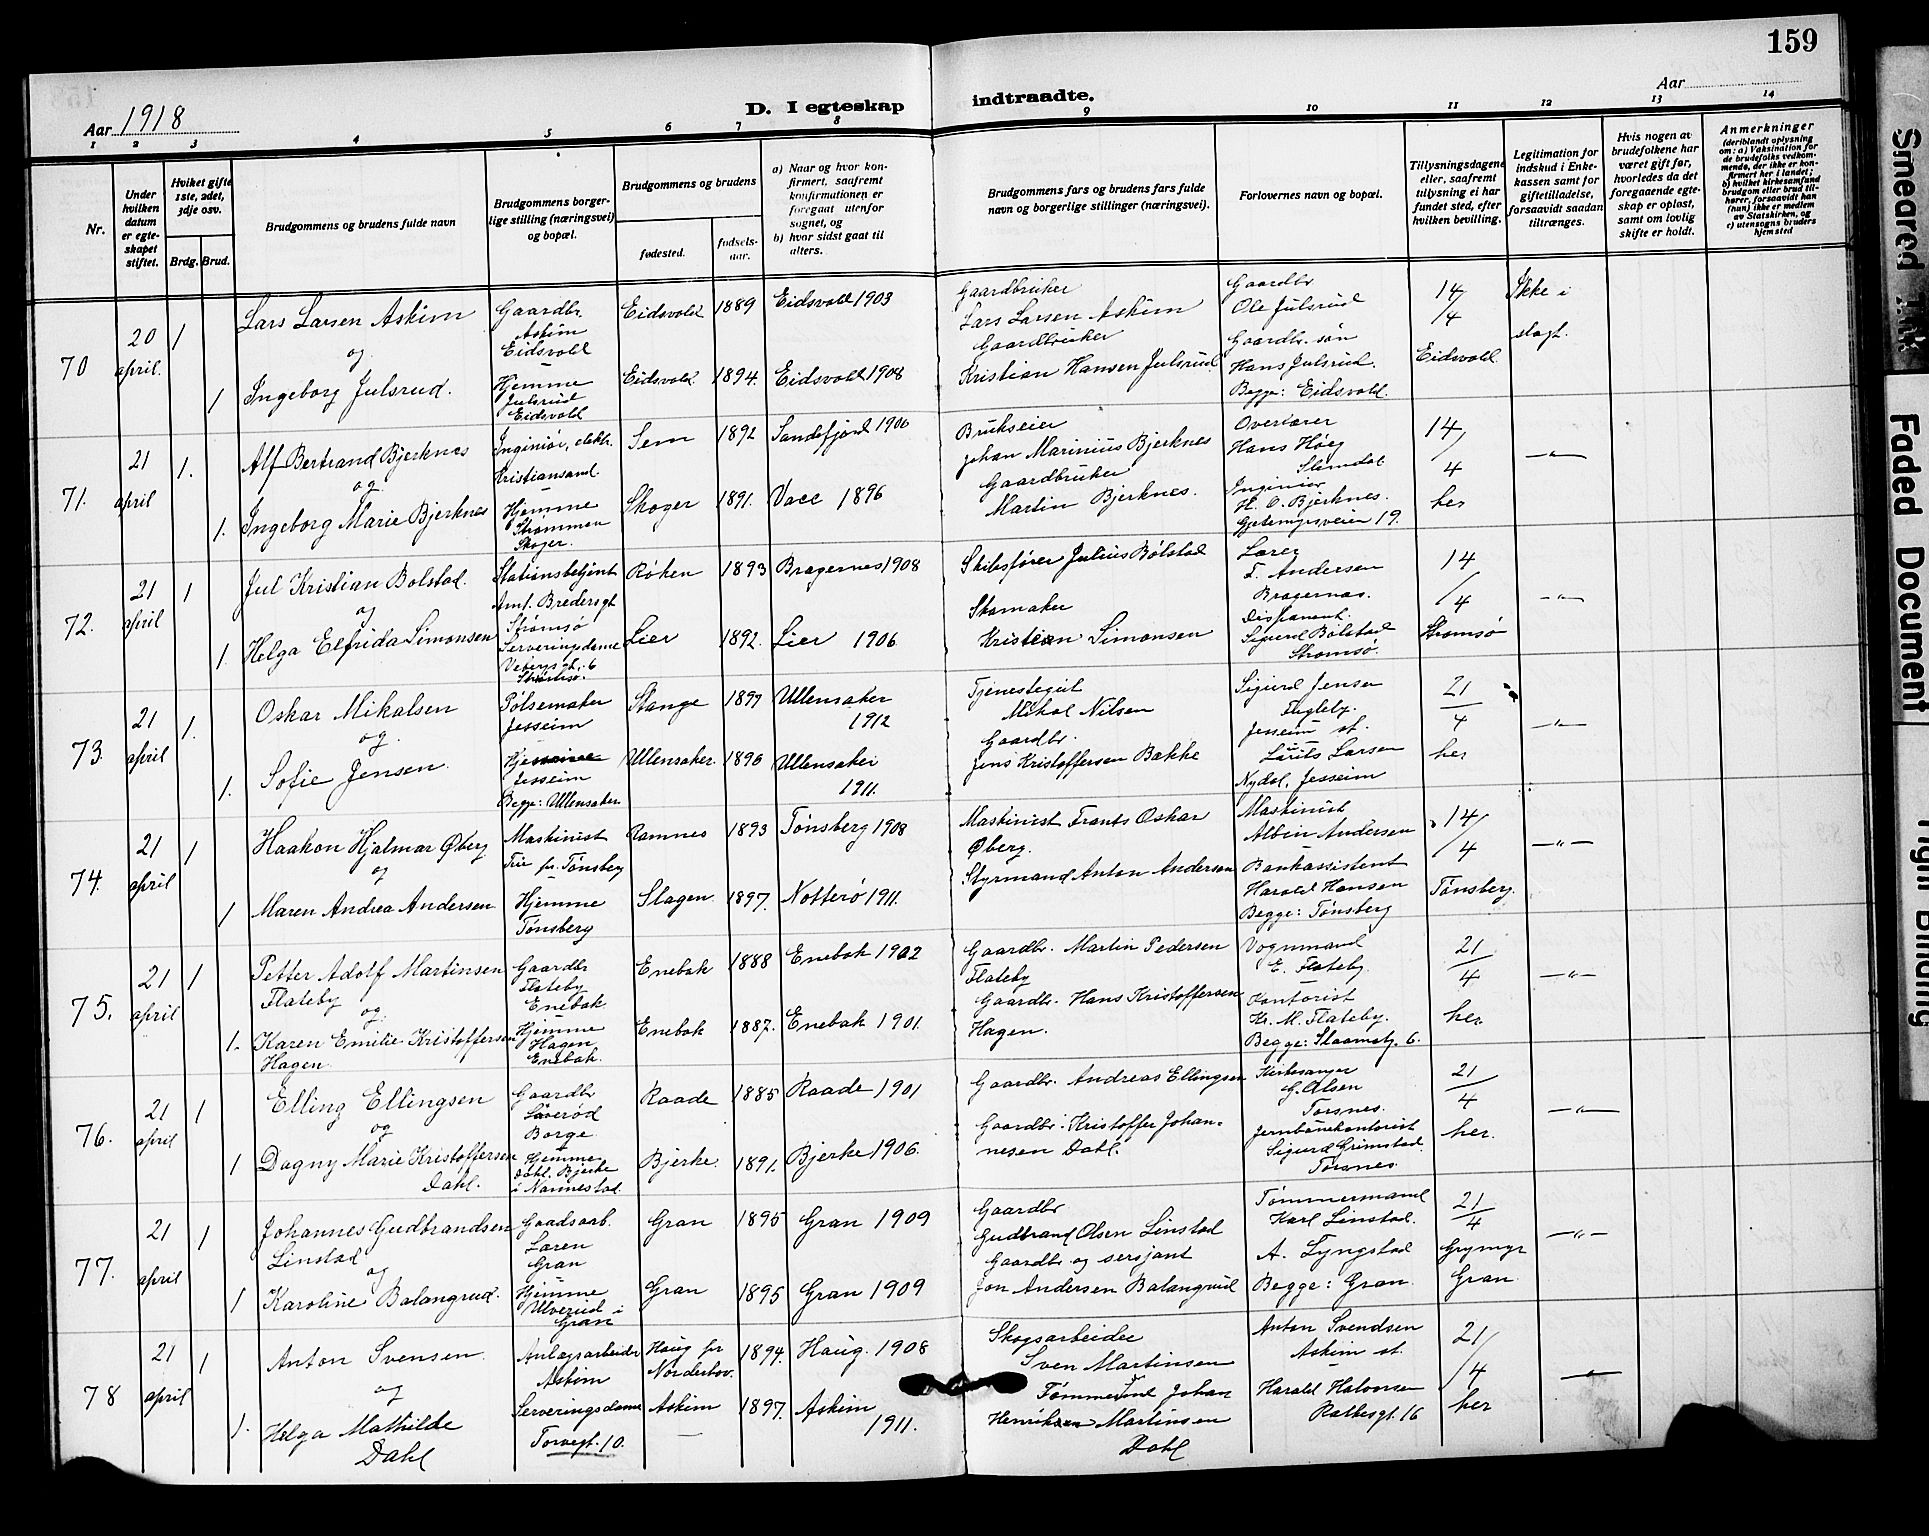 159
Aar 1918
D. I egteskap indtraadte.
Aar
1 2 3 4 5 6 7 8 9 10 11 12 13 14
Nr.
Under hvilken datum er egteskapet stiftet.
Hvilket gifte 1ste, 2det, 3dje osv.
Brdg. Brud.
Brudgommens og brudens fulde navn
Brudgommens borgerlige stilling (næringsvei) og bopæl.
Brudgommens og brudens
fødested.
fødselsaar.
a) Naar og hvor konfirmert, saafremt konfirmationen er foregaat utenfor sognet, og
b) hvor sidst gaat til alters.
Brudgommens fars og brudens fars fulde navn og borgerlige stillinger (næringsvei).
Forlovernes navn og bopæl.
Tillysningsdagene eller, saafremt tillysning ei har fundet sted, efter hvilken bevilling.
Legitimation for indskud i Enkekassen samt for giftetilladelse, forsaavidt saadan tiltrænges.
Hvis nogen av brudefolkene har været gift før, hvorledes da det foregaaende egteskap er opløst, samt om lovlig skifte er holdt.
Anmerkninger (deriblandt oplysning om: a) Vaksination for de brudefolks vedkommende, der ikke er konfirmert her i landet; b) hvilket kirkesamfund brudgom eller brud tilhører, forsaavidt han (hun) ikke er medlem av Statskirken, og c) utensogns bruders hjemsted
70 20 april. 1 Lars Larsen Askim Gaardbr. Askim Eidsvold Eidsvold 1889 Eidsvold 1903 Gaardbruker Lars Larsen Askim Gaardbr Ole Julsrud 14/4 Eidsvold Ikke i slagt.
og
1 Ingeborg Julsrud. Hjemme Julsrud Eidsvold Eidsvold 1894. Eidsvold 1908 Gaardbruker Kristian Hansen Julsrud Gaardbr. søn Hans Julsrud. Begge: Eidsvold.
71. 21 april 1. Alf Bertrand Bjerknes Inginiør, elektr. Kristiansand. Sem 1892 Sandefjord 1906 Brukseier Johan Marinius Bjerknes Overlærer Hans Høeg Slemdal 14/4 her -"-
og
1. Ingeborg Marie Bjerknes Hjemme Strømmen Skoger. Skoger 1891. 1896 Gaardbruker Martin Bjerknes. Inginiør H. O. Bjerknes. Gjetemyrsveien 19.
72. 21 april 1 Jul Kristian Bolstad. Stationsbetjent Aml. Bredersgt Strømsø Røken 1893 Bragernes 1908 Skibsfører Julius Bølstad Lærer T. Andersen Bragernas. 14/4 Strømsø -"-
og
1. Helga Elfrida Simonsen Serveringsdame Strømsø. Lier 1892. Lier 1906. Skomaker Kristian Simonsen Disponent. Sigurd Bølstad Strømsø.
73. 21 april 1. Oskar Mikalsen Pølsemaker Jesseim Stange 1899 Ullensaker 1912 Tjenestegut Mikal Nilsen Sigurd Jensen Fugleby. Jesseim st. 21/4 her -"-
og.
1. Sofie Jensen. Hjemme Jesseim Begge: Ullensaker Ullensaker. 1896 Ullensaker 1911. Gaardbr. Jens Kristoffersen Bække Laurits Larsen Nydal, Jesseim
74. 21 april 1 Haakon Hjalmar Øberg Maskinist Tønsberg Ramnes 1893 Tønsberg 1908 Maskinist Frants Oskar Øberg. Maskinist Albin Andersen 14/4 Tønsberg. -"-
og
1 Maren Andrea Andersen Hjemme Tønsberg Slagen 1897. Nøtterø 1911. Styrmand Anton Andersen Bankassistent Harald Hansen Begge: Tønsberg
75. 21 april 1 Petter Adolf Martinsen Flateby Gaardbr Flateby Enebak. Enebak 1888 Enebak 1902 Gaardbr. Martin Pedersen Flateby Vognmand E. Flateby. 21/4 her -"-
og.
1. Karen Emilie Kristoffersen Hagen. Hjemme Hagen Enebak. Enebak 1887. Enebak 1901. Gaardbr. Hans Kristoffersen Hagen. Kontorist Kr. M. Flateby. Begge: 6.
76. 21 april 1 Elling Ellingsen Gaardbr Borge Raade 1885 Raade 1901 Gaardbr. Andreas Ellingsen Kirkesanger G. Olsen Torsnes. 21/4 her. -"-
og
1 Dagny Marie Kristoffersen Dahl. Hjemme Dahl. Bjerke i Nannestad. Bjerke. 1891. Bjerke 1906. Gaardbr. Kristoffer Johannesen Dahl. Jernbanekontorist Sigurd Grimstad. Torsnes.
77. 21 april 1 Johannes Gudbrandsen Linstad Gaadsarb. Laren Gran Gran 1895 Gran 1909 Gaardbr Gudbrand Olsen Linstad Tømmermand Karl Linstad. 21/4 Grymyr Gran -"-
og
1 Karoline Balangrud. Hjemme Ulverud i Gran Gran 1895 Gran 1909 Gaardbr og sersjant Jon Andersen Balangrud A. Lyngstad Begge: Gran
78 21 april 1 Anton Svensen. Anlægsarbeider Askim Haug pr Norderhov. 1894. Haug. 1908 Skogsarbeider Sven Martinsen Anton Svendsen Askim st. 21/4 her -"-
og
1. Helga Mathilde Dahl Serveringsdame Torvegt. 10. Askim 1897. Askim 1911. Johan Henriksen Martinsen Dahl Harald Halvorsen Ratkesgt. 16
Smeared Ink
Faded Document
Tight Binding